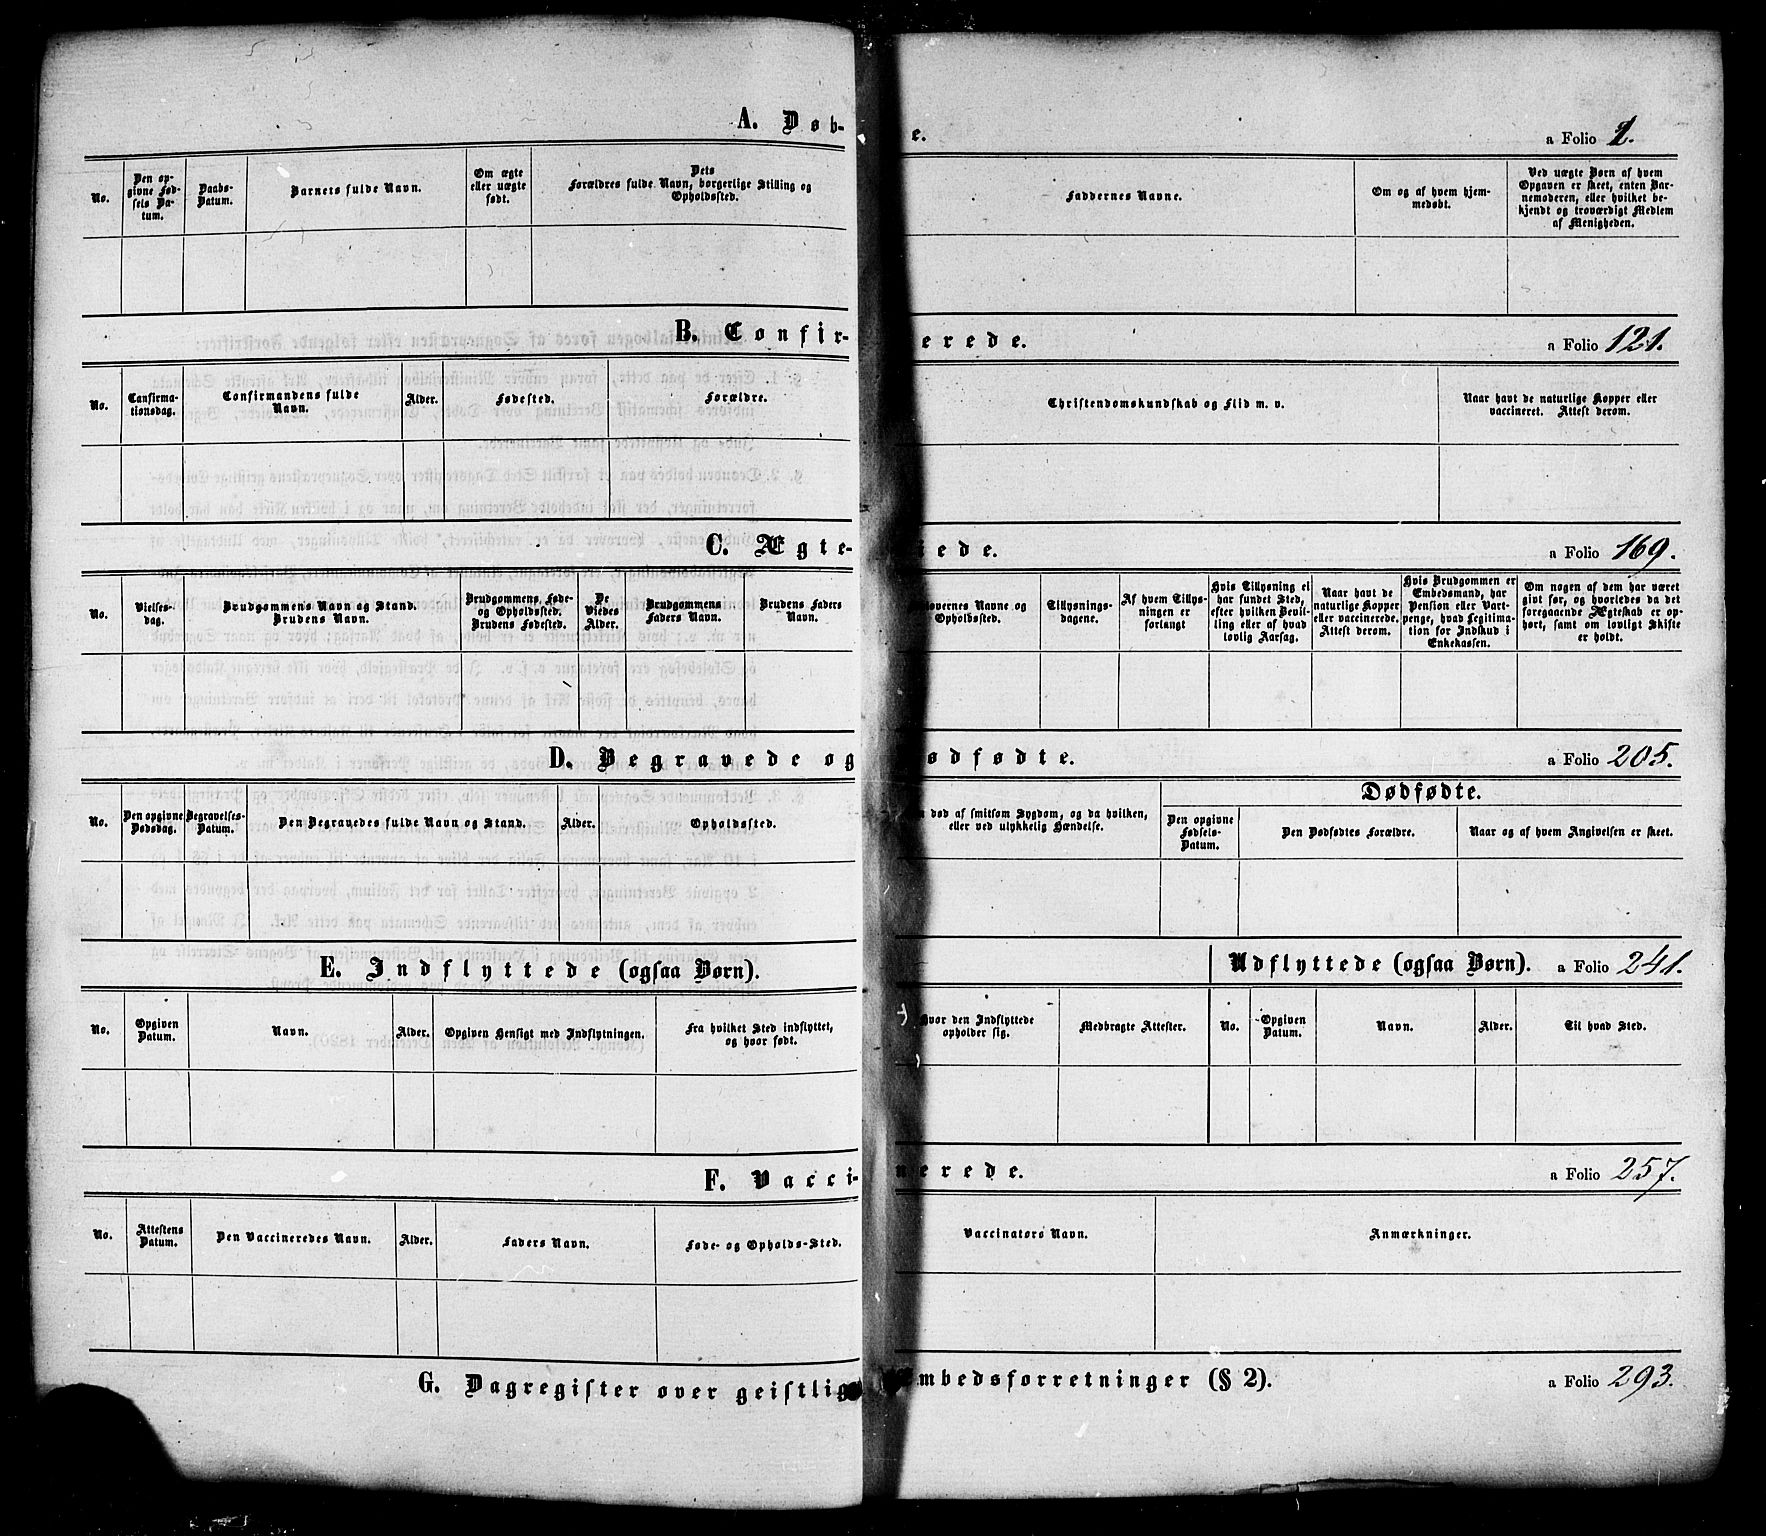 A. Døb-
e.
a Folio 1.
No.
Den op-
givne Fød-
sels Da-
tum.
Daabs-
Datum.
Barnets fulde Navn.
Om ægte
eller uægte
født.
Dets
Forældres fulde Navn, borgerlige Stilling og
Opholdssted.
Faddernes Navne.
Om og af hvem hjem-
medøbt.
Ved uægte Børn af hvem
Opgaven er skeet, enten Bar-
nemoderen, eller hvilket be-
kjendt og troværdigt Medlem
af Menigheden.
B. Confir-
erede.
a Folio 121.
No.
Confirma-
tionsdag.
Confirmandens fulde
Navn.
Alder.
Fødested.
Forældre.
Christendomskundskab og Flid m. v.
Naar havt de naturlige Kopper eller
vaccineret. Attest derom.
C. Ægte-
iede.
a Folio 169.
No.
Vielses-
dag.
Brudgommens Navn og Stand.
Brudens Navn.
Brudgommens Føde-
og Opholdssted.
Brudens Fødested.
De
Viedes
Alder.
Brudgommens
Faders Navn.
Brudens Faders
Navn.
overnes Navne og
Opholdssted.
Tillysnings-
dagene.
Af hvem Tillys-
ningen er
forlangt
Hvis Tillysning ei
har fundet Sted,
efter hvilken Bevil-
ling eller af hvad
lovlig Aarsag.
Naar havt de
naturlige Kopper
eller vaccinerede.
Attest derom.
Hvis Brudgommen er
Embedsmand, har
Pension eller Vart-
penge, hvad Legitima-
tion for Indskud i
Enkekassen.
Om nogen af dem har været
givt før, og hvorledes da det
foregaaende Ægteskab er op-
hørt, samt om lovligt Skifte
er holdt.
D. Begravede og
ødfødte.
a Folio 205.
No.
Den opgivne
Dødsdag.
Begravelses-
Datum.
Den Begravedes fulde Navn og Stand.
Alder.
Opholdssted.
død af smitsom Sygdom, og da hvilken,
eller ved ulykkelig Hændelse.
Dødfødte.
Den opgivne
Fødsels-
Datum.
Den Dødfødtes Forældre.
Naar og af hvem Angivelsen er skeet.
E. Indflyttede (ogsaa Børn).
Udflyttede (ogsaa Børn).
a Folio 241.
No.
Opgiven
Datum.
Navn.
Alder.
Opgiven Hensigt med Indflytningen.
Fra hvilket Sted indflyttet,
og hvor født.
Hvor den Indflyttede
opholder sig.
Medbragte Attester.
No.
Opgiven
Datum.
Navn.
Alder.
Til hvad Sted.
F. Vacci-
nerede.
a Folio 257.
No.
Attestens
Datum.
Den Vaccineredes Navn.
Alder.
Faders Navn.
Føde- og Opholds-Sted.
Vaccinatørs Navn.
Anmærkninger.
G. Dagregister over geistlig
Embedsforretninger (§ 2).
a Folio 293.